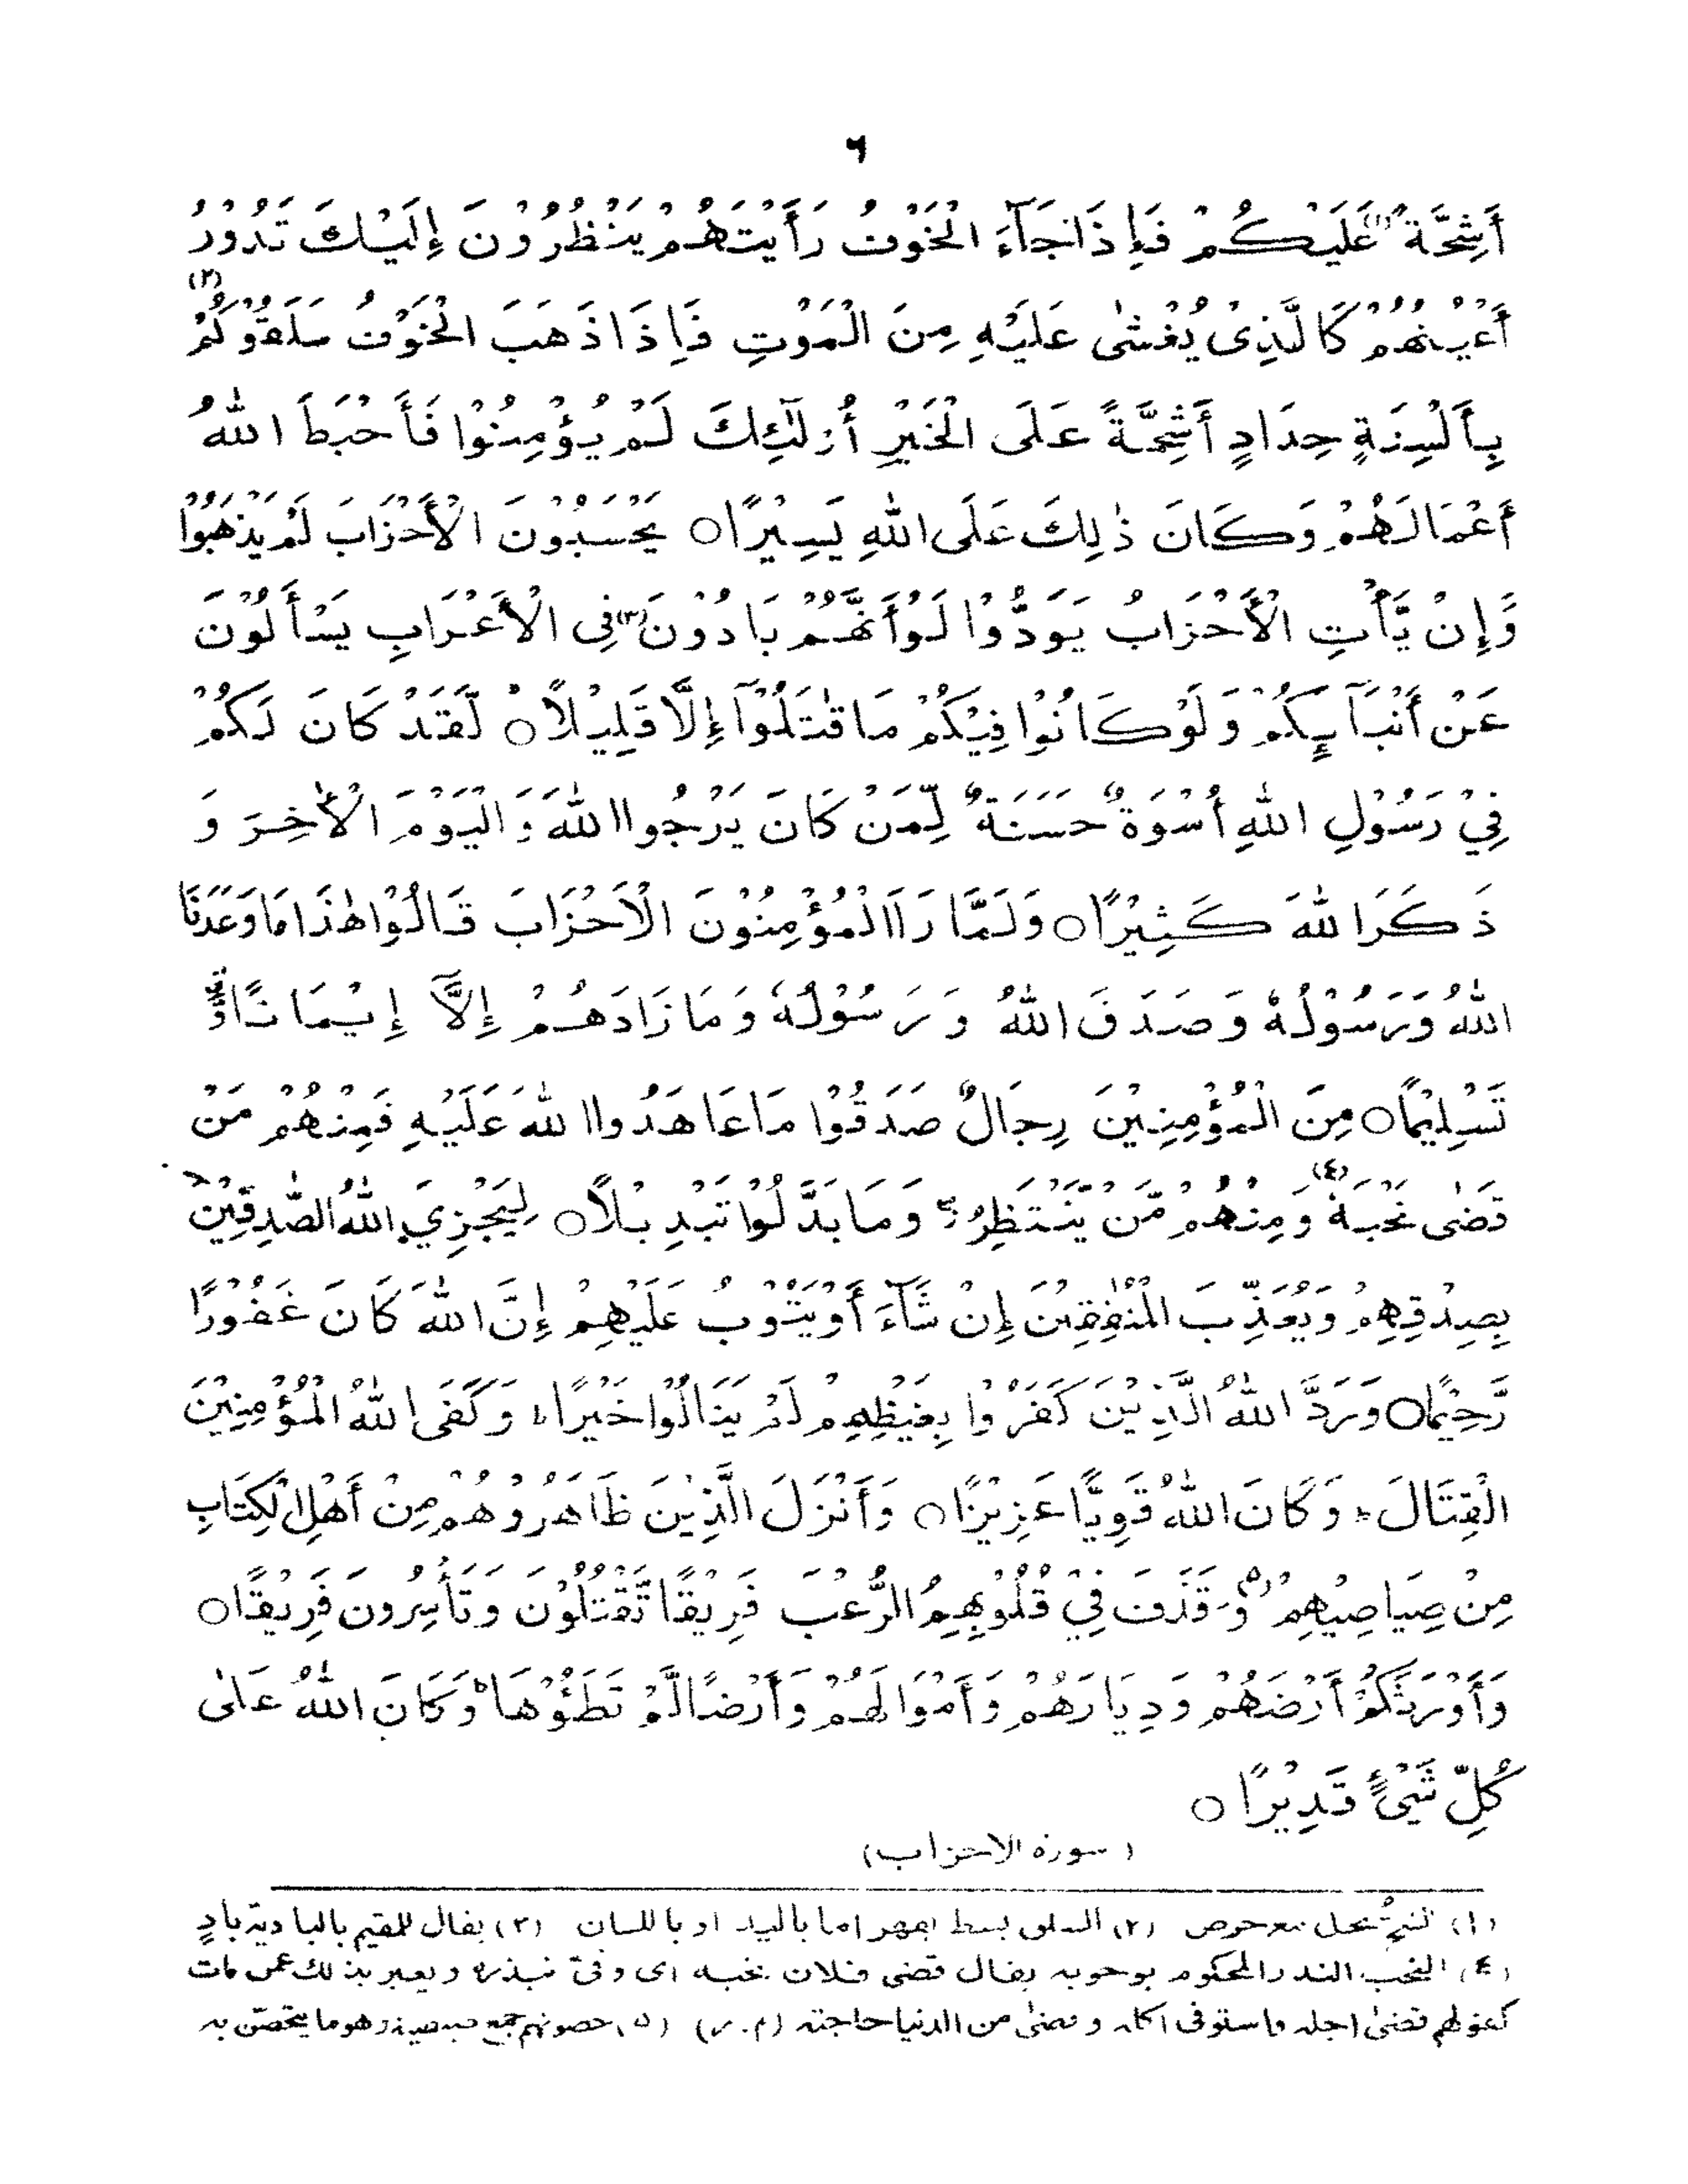 ٦
أَشِحَّةً (١) عَلَيْكُمْ فَإِذَا جَآءَ الْخَوْفُ رَأَيْتَهُمْ يَنْظُرُوْنَ إِلَيْكَ تَدُوْرُ
أَعْيُنُهُمْ كَالَّذِىْ يُغْشٰى عَلَيْهِ مِنَ الْمَوْتِ فَإِذَا ذَهَبَ الْخَوْفُ سَلَقُوْكُمْ (٢)
بِأَلْسِنَةٍ حِدَادٍ أَشِحَّةً عَلَى الْخَيْرِ أُولٰٓئِكَ لَمْ يُؤْمِنُوْا فَأَحْبَطَ اللّٰهُ
أَعْمَالَهُمْ وَكَانَ ذٰلِكَ عَلَى اللّٰهِ يَسِيْرًا ○ يَحْسَبُوْنَ الْأَحْزَابَ لَمْ يَذْهَبُوْا
وَإِنْ يَّأْتِ الْأَحْزَابُ يَوَدُّوْا لَوْ أَنَّهُمْ بَادُوْنَ (٣) فِى الْأَعْرَابِ يَسْأَلُوْنَ
عَنْ أَنْبَآىِٕكُمْ وَلَوْ كَانُوْا فِيْكُمْ مَا قٰتَلُوْآ إِلَّا قَلِيْلًا ○ لَقَدْ كَانَ لَكُمْ
فِيْ رَسُوْلِ اللّٰهِ أُسْوَةٌ حَسَنَةٌ لِّمَنْ كَانَ يَرْجُوا اللّٰهَ وَالْيَوْمَ الْاٰخِرَ وَ
ذَكَرَ اللّٰهَ كَثِيْرًا ○ وَلَمَّا رَاَ الْمُؤْمِنُوْنَ الْاَحْزَابَ قَالُوْا هٰذَا مَا وَعَدَنَا
اللّٰهُ وَرَسُوْلُهٗ وَصَدَقَ اللّٰهُ وَرَسُوْلُهٗ وَمَا زَادَهُمْ إِلَّآ إِيْمَانًا وَّ
تَسْلِيْمًا ○ مِنَ الْمُؤْمِنِيْنَ رِجَالٌ صَدَقُوْا مَا عَاهَدُوا اللّٰهَ عَلَيْهِ فَمِنْهُمْ مَنْ
قَضٰى نَحْبَهٗ (٤) وَمِنْهُمْ مَّنْ يَّنْتَظِرُ وَمَا بَدَّلُوْا تَبْدِيْلًا ○ لِيَجْزِيَ اللّٰهُ الصّٰدِقِيْنَ
بِصِدْقِهِمْ وَيُعَذِّبَ الْمُنٰفِقِيْنَ إِنْ شَآءَ أَوْ يَتُوْبَ عَلَيْهِمْ إِنَّ اللّٰهَ كَانَ غَفُوْرًا
رَّحِيْمًا ○ وَرَدَّ اللّٰهُ الَّذِيْنَ كَفَرُوْا بِغَيْظِهِمْ لَمْ يَنَالُوْا خَيْرًا ط وَكَفَى اللّٰهُ الْمُؤْمِنِيْنَ
الْقِتَالَ ط وَكَانَ اللّٰهُ قَوِيًّا عَزِيْزًا ○ وَأَنْزَلَ الَّذِيْنَ ظَاهَرُوْهُمْ مِنْ أَهْلِ الْكِتَابِ
مِنْ صَيَاصِيْهِمْ (٥) وَقَذَفَ فِيْ قُلُوْبِهِمُ الرُّعْبَ فَرِيْقًا تَقْتُلُوْنَ وَتَأْسِرُونَ فَرِيْقًا ○
وَأَوْرَثَكُمْ أَرْضَهُمْ وَدِيَارَهُمْ وَأَمْوَالَهُمْ وَأَرْضًا لَّمْ تَطَئُوْهَا ط وَكَانَ اللّٰهُ عَلٰى
كُلِّ شَيْءٍ قَدِيْرًا ○
(سورة الاحزاب)
(١) الشحُّ بخل مع حرص (٢) السلق بسط بقهر اما باليد او باللسان (٣) يقال للمقيم بالبادية بادٍ
(٤) النحب النذر المحكوم بوجوبه يقال قضى فلان نحبه اى وفىٰ بنذره ويعبر بذلك عمن مات
كقولهم قضىٰ اجله واستوفى اكله وقضىٰ من الدنيا حاجته (م.ر) (٥) حصونهم جمع صيصية وهو ما يتحصّن به